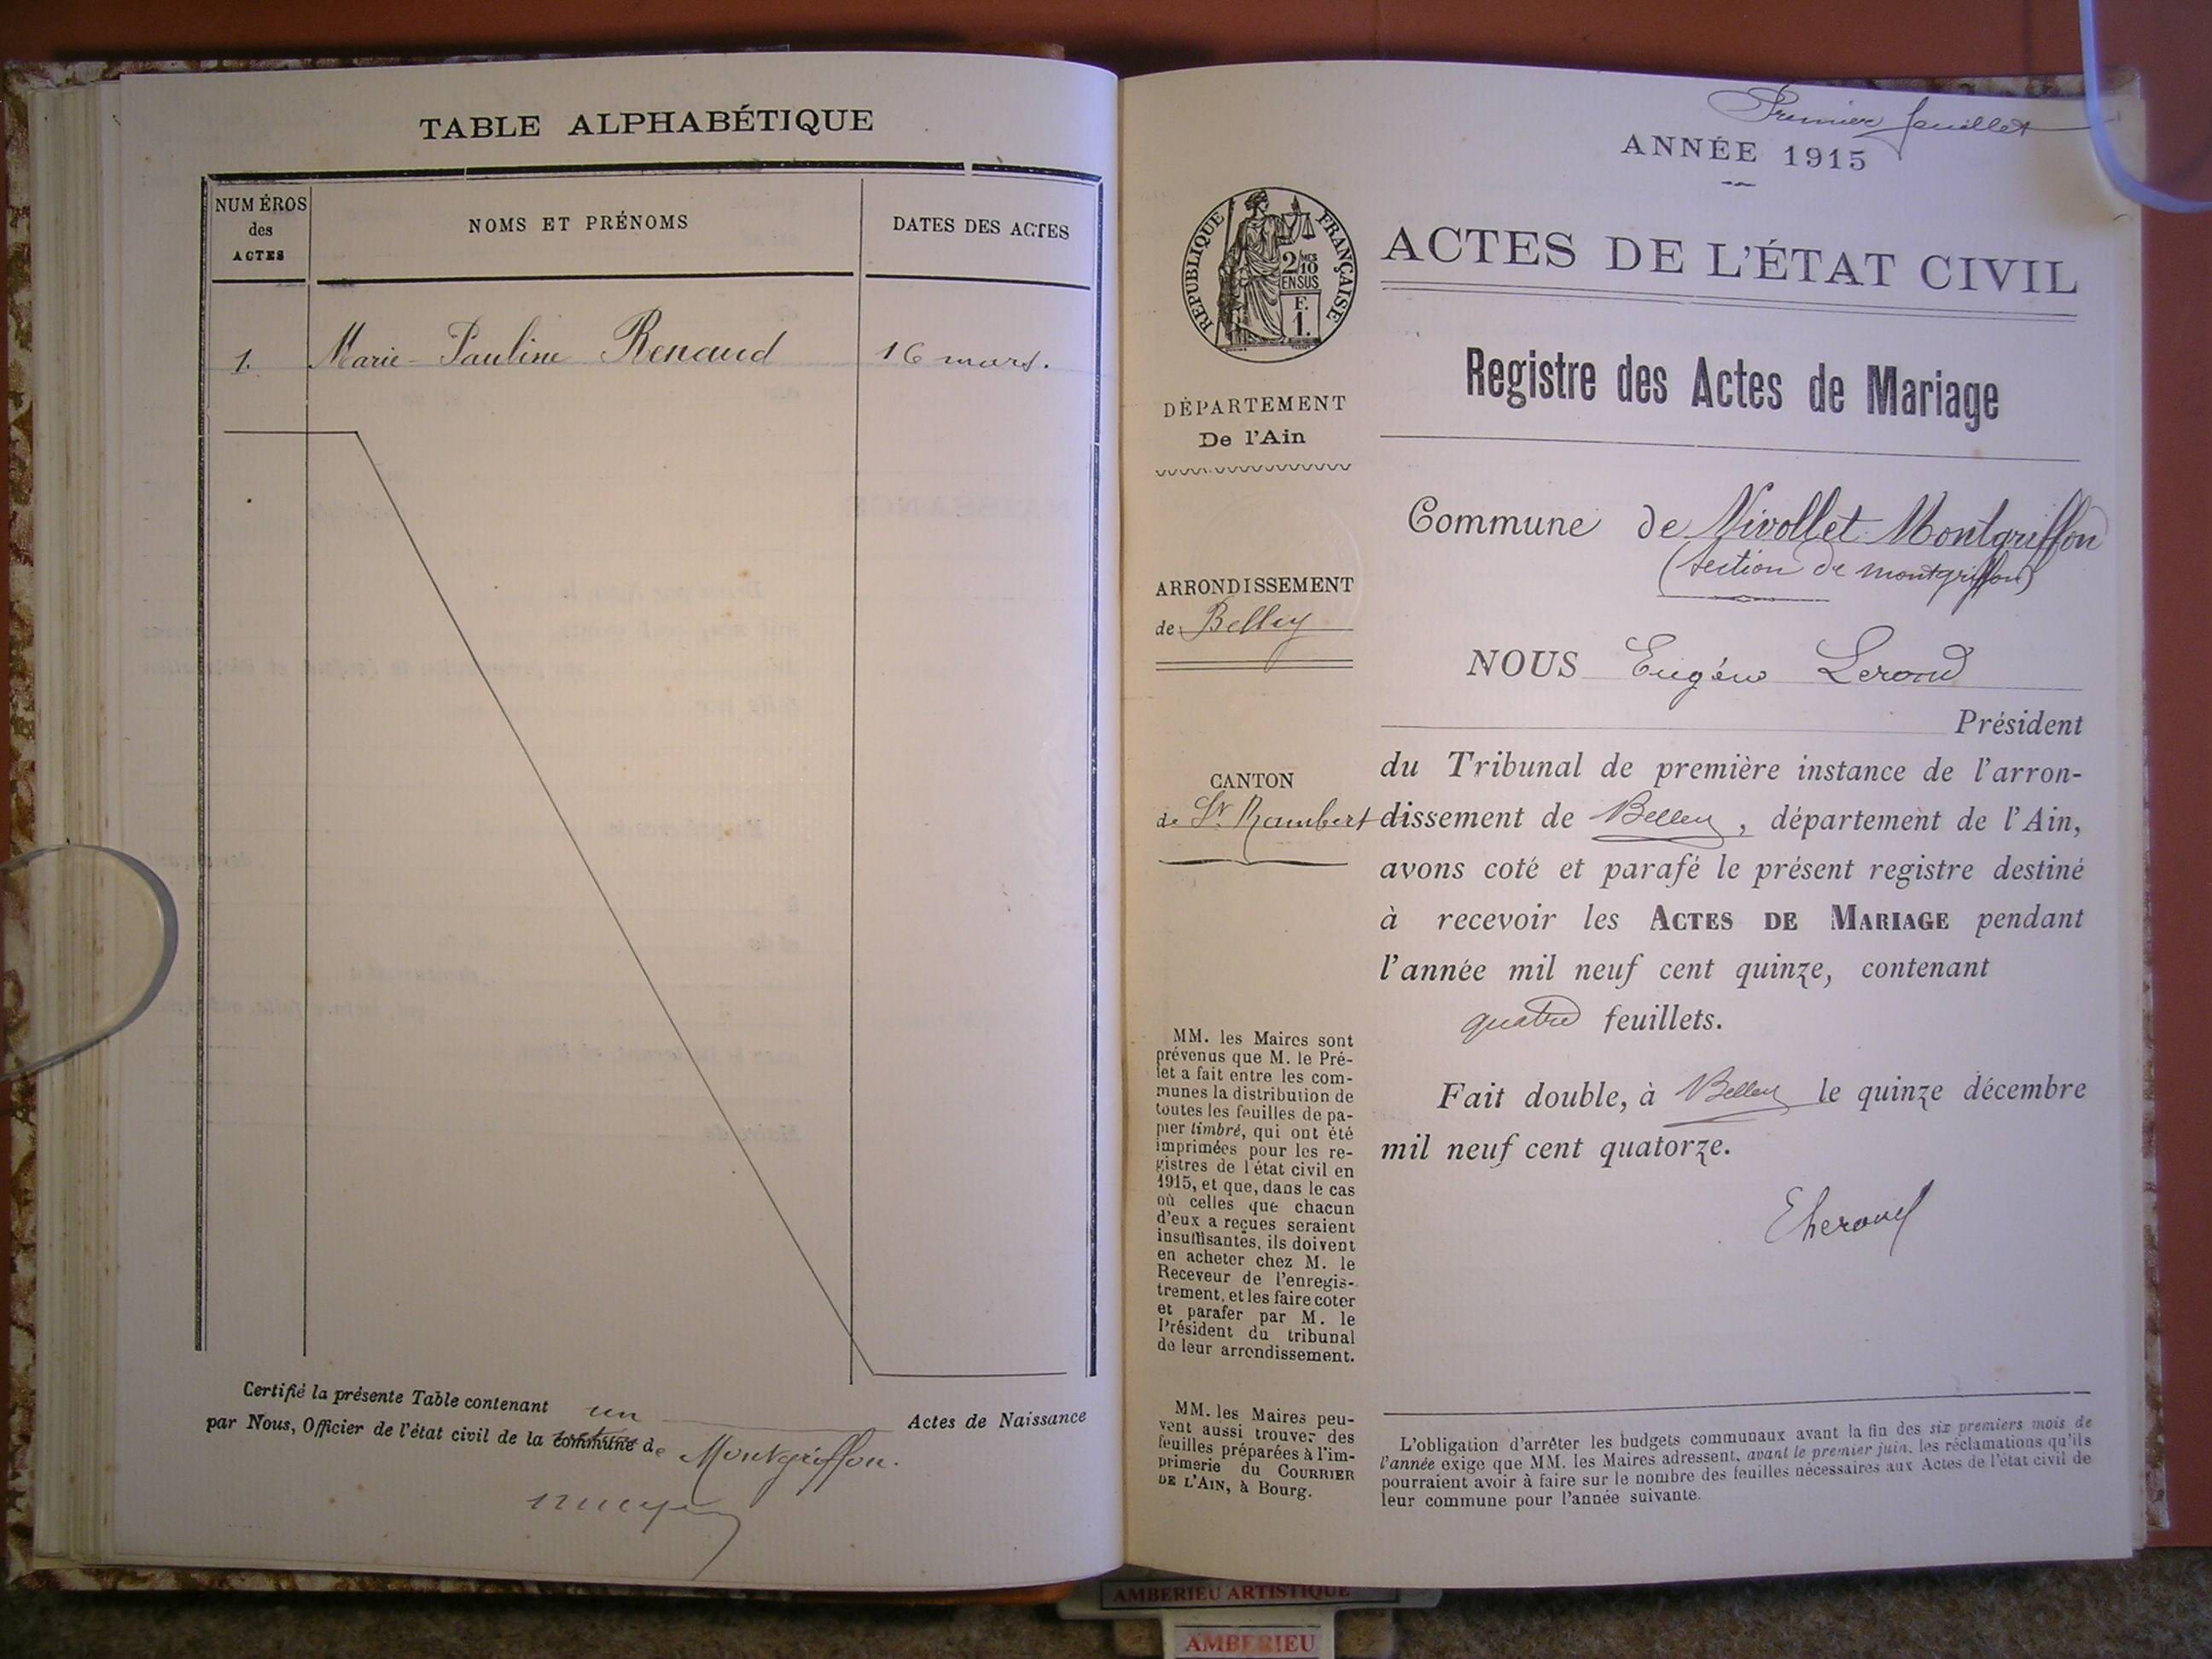 TABLE ALPHABÉTIQUE
NUMÉROS
des
ACTES
NOMS ET PRÉNOMS
DATES DES ACTES
1. Marie-Pauline Renaud 16 mars.
Certifié la présente Table contenant un Actes de Naissance
par Nous, Officier de l'état civil de la commune de Montgriffon.
Premier feuillet
ANNÉE 1915
RÉPUBLIQUE FRANÇAISE
2/10
EN SUS
F.
1.
DÉPARTEMENT
De l'Ain
ARRONDISSEMENT
de Belley
CANTON
de St Rambert
MM. les Maires sont
prévenus que M. le Pré-
fet a fait entre les com-
munes la distribution de
toutes les feuilles de pa-
pier timbré, qui ont été
imprimées pour les re-
gistres de l'état civil en
1915, et que, dans le cas
où celles que chacun
d'eux a reçues seraient
insuffisantes, ils doivent
en acheter chez M. le
Receveur de l'enregis-
trement, et les faire coter
et parafer par M. le
Président du tribunal
de leur arrondissement.
MM. les Maires peu-
vent aussi trouver des
feuilles préparées à l'im-
primerie du COURRIER
DE L'AIN, à Bourg.
ACTES DE L'ÉTAT CIVIL
Registre des Actes de Mariage
Commune de Nivollet-Montgriffon
(section de montgriffon)
NOUS Eugène Lerond
Président
du Tribunal de première instance de l'arron-
dissement de Belley, département de l'Ain,
avons coté et parafé le présent registre destiné
à recevoir les ACTES DE MARIAGE pendant
l'année mil neuf cent quinze, contenant
quatre feuillets.
Fait double, à Belley le quinze décembre
mil neuf cent quatorze.
L'obligation d'arrêter les budgets communaux avant la fin des six premiers mois de
l'année exige que MM. les Maires adressent, avant le premier juin, les réclamations qu'ils
pourraient avoir à faire sur le nombre des feuilles nécessaires aux Actes de l'état civil de
leur commune pour l'année suivante.
AMBERIEU ARTISTIQUE
AMBERIEU